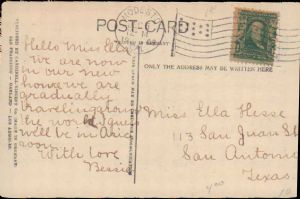 POST-CARD
ONLY THE ADDRESS MAY BE WRITTEN HERE
Hello Miss Ella
we are now
in our new
home we are
gradually
traveling
the world guess
will be in
soon.
With love
Bessie
Miss Ella Hesse
113 San Juan St
San Antonio
Texas